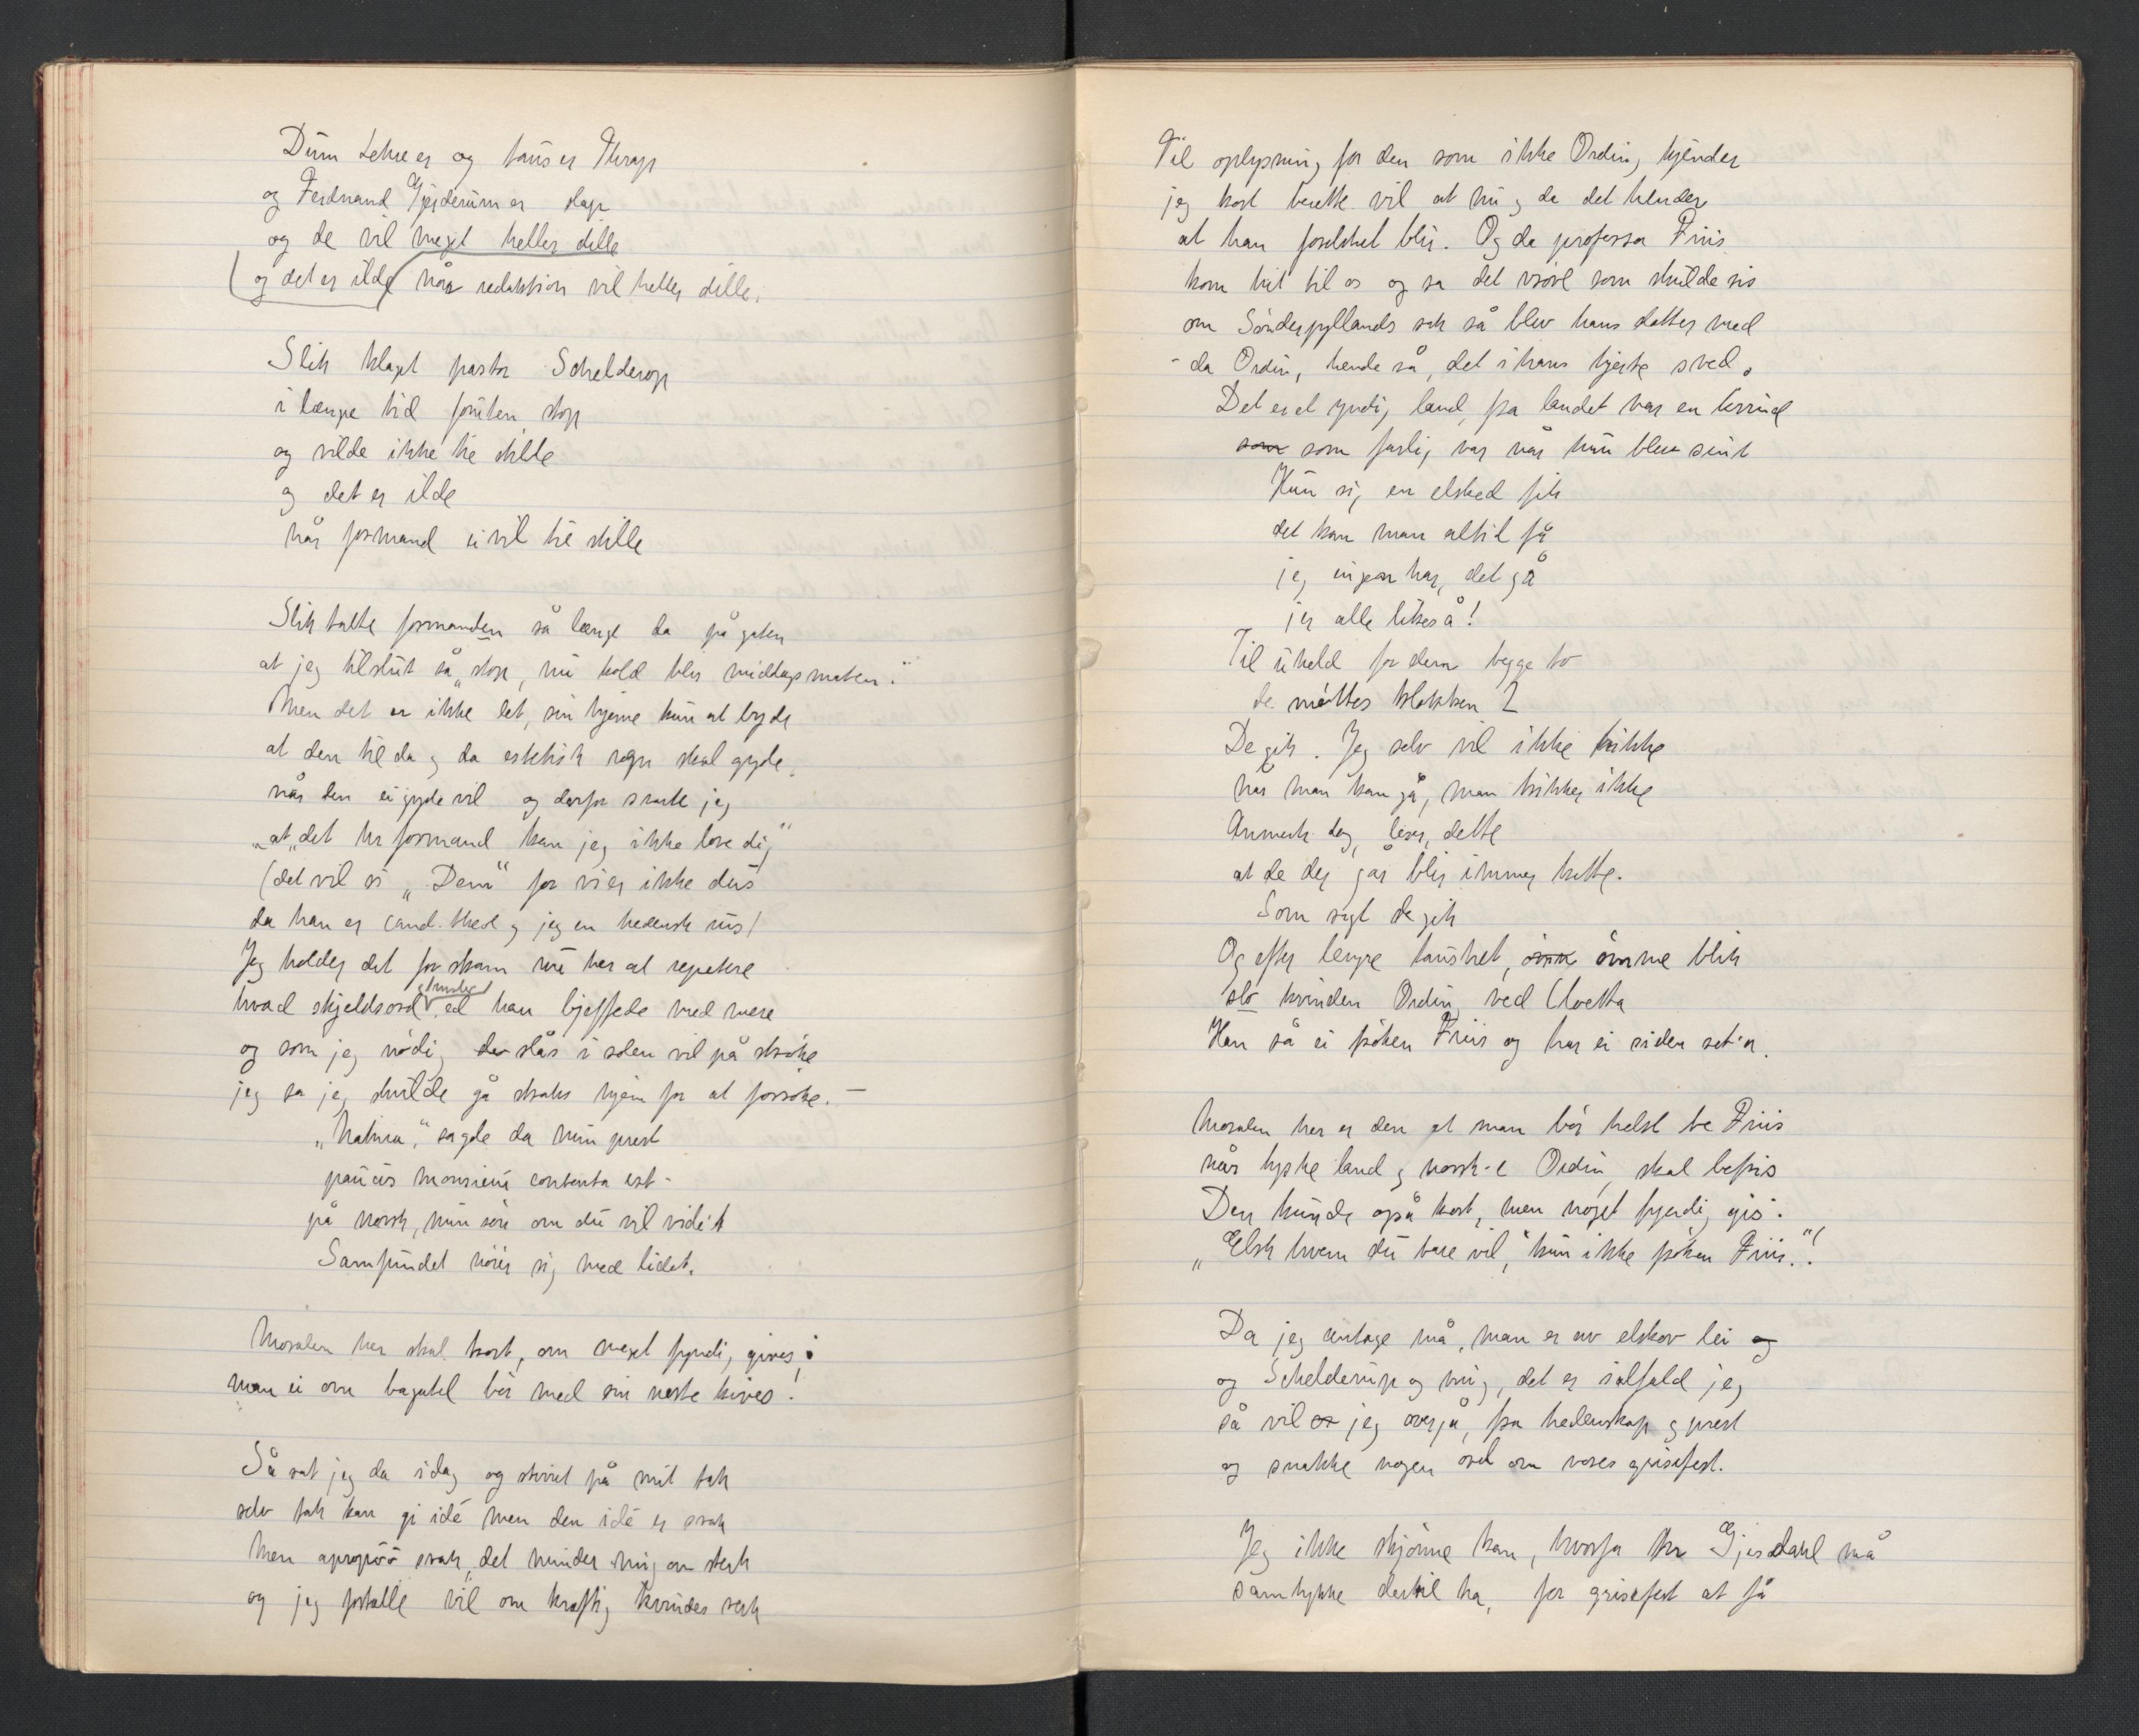 Dum Lehre er og taus er Thrap
og Ferdnand Gjerderum er slap
og de vil meget heller dille
og det er ilde når redaktion vil heller dille.
Slik klaget pastor Schelderop
i længre tid foruten stop
og vilde ikke tie stille
og det er ilde
når formand ei vil tie stille
Slik talte formanden så længe da på gaten
at jeg tilslut sa „stop, nu kold blir middagsmaten."
Men det er ikke let, sin hjerne kun at byde
at den til da og da estetisk regn skal gyde,
når den ei gyde vil og derfor svarte jeg
„at „det hr formand kan jeg ikke love dig"
(det vil si „Dem" for vi er ikke dus
da han er cand. theol og jeg en hedensk rus)
Jeg holder det for skam nu her at repetere
hvad skjeldsord, ed han bjeffede med mere
og som jeg nødig da slås i solen vil på strøke
jeg sa jeg skulde gå straks hjem for at forsøke. —
„Natura," sagde da min prest
paucis contenta est -
på norsk, min søn om du vil vide't
Samfundet nøier sig med lidet.
Moralen her skal kort, om meget fyndig, gives:
man ei om bagatel bør med sin neste kives!
Så sat jeg da idag og stirret på mit tak
selv tak kan gi idé men den idé er svak
Men apropos svak, det minder mig om sterk
og jeg fortælle vil om kraftig kvindes verk
Til oplysning for den som ikke Ording kjender
jeg kort berette vil at nu og da det hender
at han forelsket blir. Og da professor Friis
kom hit til os og sa det vrøvl som skulde sis
om Sønderjyllands sak så blev hans datter med
- da Ording hende så, det i hans hjerte sved.
Det er et yndig land, fra landet var en kvind
som som farlig var når hun blev sint
Hun sig en elsked fik
det kan man altid få
jeg ingen har, det gå
jer alle likeså!
Til uheld for dem begge to
de møttes klokken 2
De gik. Jeg selv vil ikke trikke
når man kan gå, man trikker ikke
Anmerk dog, leser, dette
at de der går blir immer trette.
Som sagt de gik
Og efter længre taushet, ømme blik
slo kvinden Ording ved Uvetta
Han så ei frøken Friis og har ei siden set'a.
Moralen her er den at man bør helst be Friis
når tyske land og norsk-e Ording skal befris
Den kunde også kort, men noget fyndig gis:
„Elsk hvem du bare vil, kun ikke frøken Friis."!
Da jeg antage må, man er av elskov lei og
og Schelderup og mig, det er ialfald jeg
så vil jeg overgå, fra hedenskap og prest
og snakke nogen ord om vores grisefest.
Jeg ikke skjønne kan, hvorfor hr Gjesdahl må
samtykke dertil ha, for grisefest at få